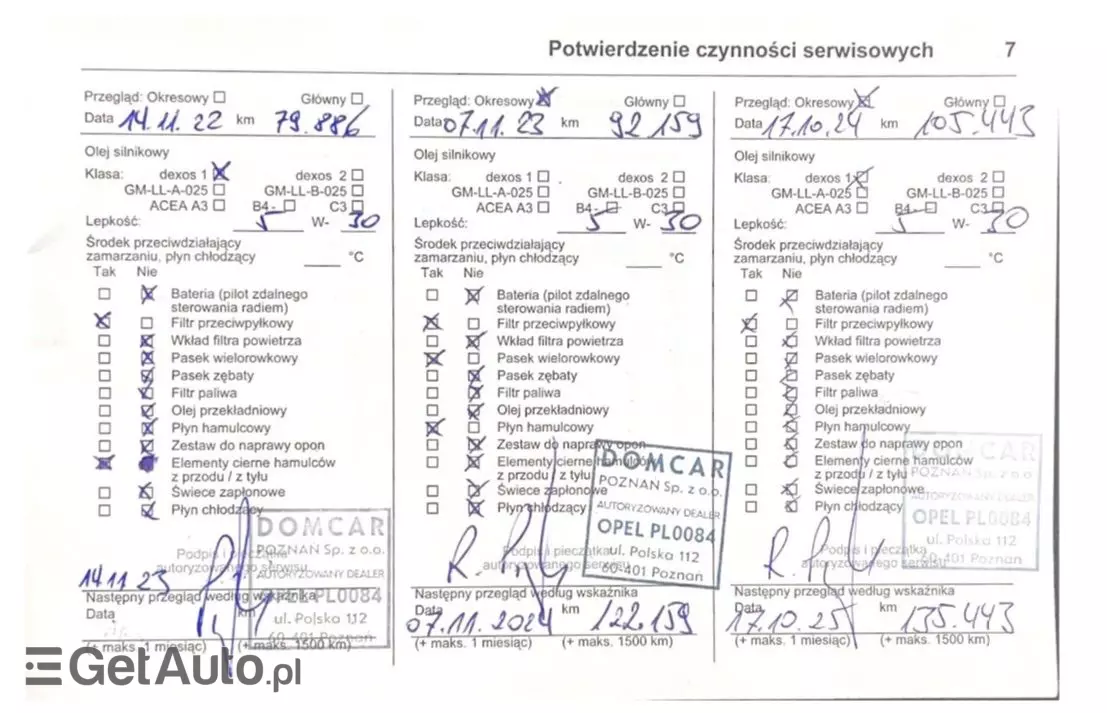 Potwierdzenie czynności serwisowych 7
Przegląd: Okresowy Główny
Data 14.11.22 km 79.886
Olej silnikowy
Klasa: dexos 1 dexos 2
GM-LL-A-025 GM-LL-B-025
ACEA A3 B4- C3
Lepkość: 5 W- 30
Środek przeciwdziałający
zamarzaniu, płyn chłodzący °C
Tak Nie
Bateria (pilot zdalnego
sterowania radiem)
Filtr przeciwpyłkowy
Wkład filtra powietrza
Pasek wielorowkowy
Pasek zębaty
Filtr paliwa
Olej przekładniowy
Płyn hamulcowy
Zestaw do naprawy opon
Elementy cierne hamulców
z przodu / z tyłu
Świece zapłonowe
Płyn chłodzący
DOMCAR
POZNAŃ Sp. z o.o.
AUTORYZOWANY DEALER
OPEL PL0084
ul. Polska 112
60-401 Poznań
Podpis i pieczątka
autoryzowanego serwisu
14.11.23
Następny przegląd według wskaźnika
Data km
(+ maks. 1 miesiąc) (+ maks. 1500 km)
Przegląd: Okresowy Główny
Data 07.11.23 km 92.159
Olej silnikowy
Klasa: dexos 1 dexos 2
GM-LL-A-025 GM-LL-B-025
ACEA A3 B4- C3
Lepkość: 5 W- 30
Środek przeciwdziałający
zamarzaniu, płyn chłodzący °C
Tak Nie
Bateria (pilot zdalnego
sterowania radiem)
Filtr przeciwpyłkowy
Wkład filtra powietrza
Pasek wielorowkowy
Pasek zębaty
Filtr paliwa
Olej przekładniowy
Płyn hamulcowy
Zestaw do naprawy opon
Elementy cierne hamulców
z przodu / z tyłu
Świece zapłonowe
Płyn chłodzący
DOMCAR
POZNAŃ Sp. z o.o.
AUTORYZOWANY DEALER
OPEL PL0084
ul. Polska 112
60-401 Poznań
Podpis i pieczątka
autoryzowanego serwisu
Następny przegląd według wskaźnika
Data 07.11.2024 km 122.159
(+ maks. 1 miesiąc) (+ maks. 1500 km)
Przegląd: Okresowy Główny
Data 17.10.24 km 105.443
Olej silnikowy
Klasa: dexos 1 dexos 2
GM-LL-A-025 GM-LL-B-025
ACEA A3 B4- C3
Lepkość: 5 W- 30
Środek przeciwdziałający
zamarzaniu, płyn chłodzący °C
Tak Nie
Bateria (pilot zdalnego
sterowania radiem)
Filtr przeciwpyłkowy
Wkład filtra powietrza
Pasek wielorowkowy
Pasek zębaty
Filtr paliwa
Olej przekładniowy
Płyn hamulcowy
Zestaw do naprawy opon
Elementy cierne hamulców
z przodu / z tyłu
Świece zapłonowe
Płyn chłodzący
DOMCAR
POZNAŃ Sp. z o.o.
AUTORYZOWANY DEALER
OPEL PL0084
ul. Polska 112
60-401 Poznań
Podpis i pieczątka
autoryzowanego serwisu
Następny przegląd według wskaźnika
Data 17.10.25 km 135.443
(+ maks. 1 miesiąc) (+ maks. 1500 km)
GetAuto.pl